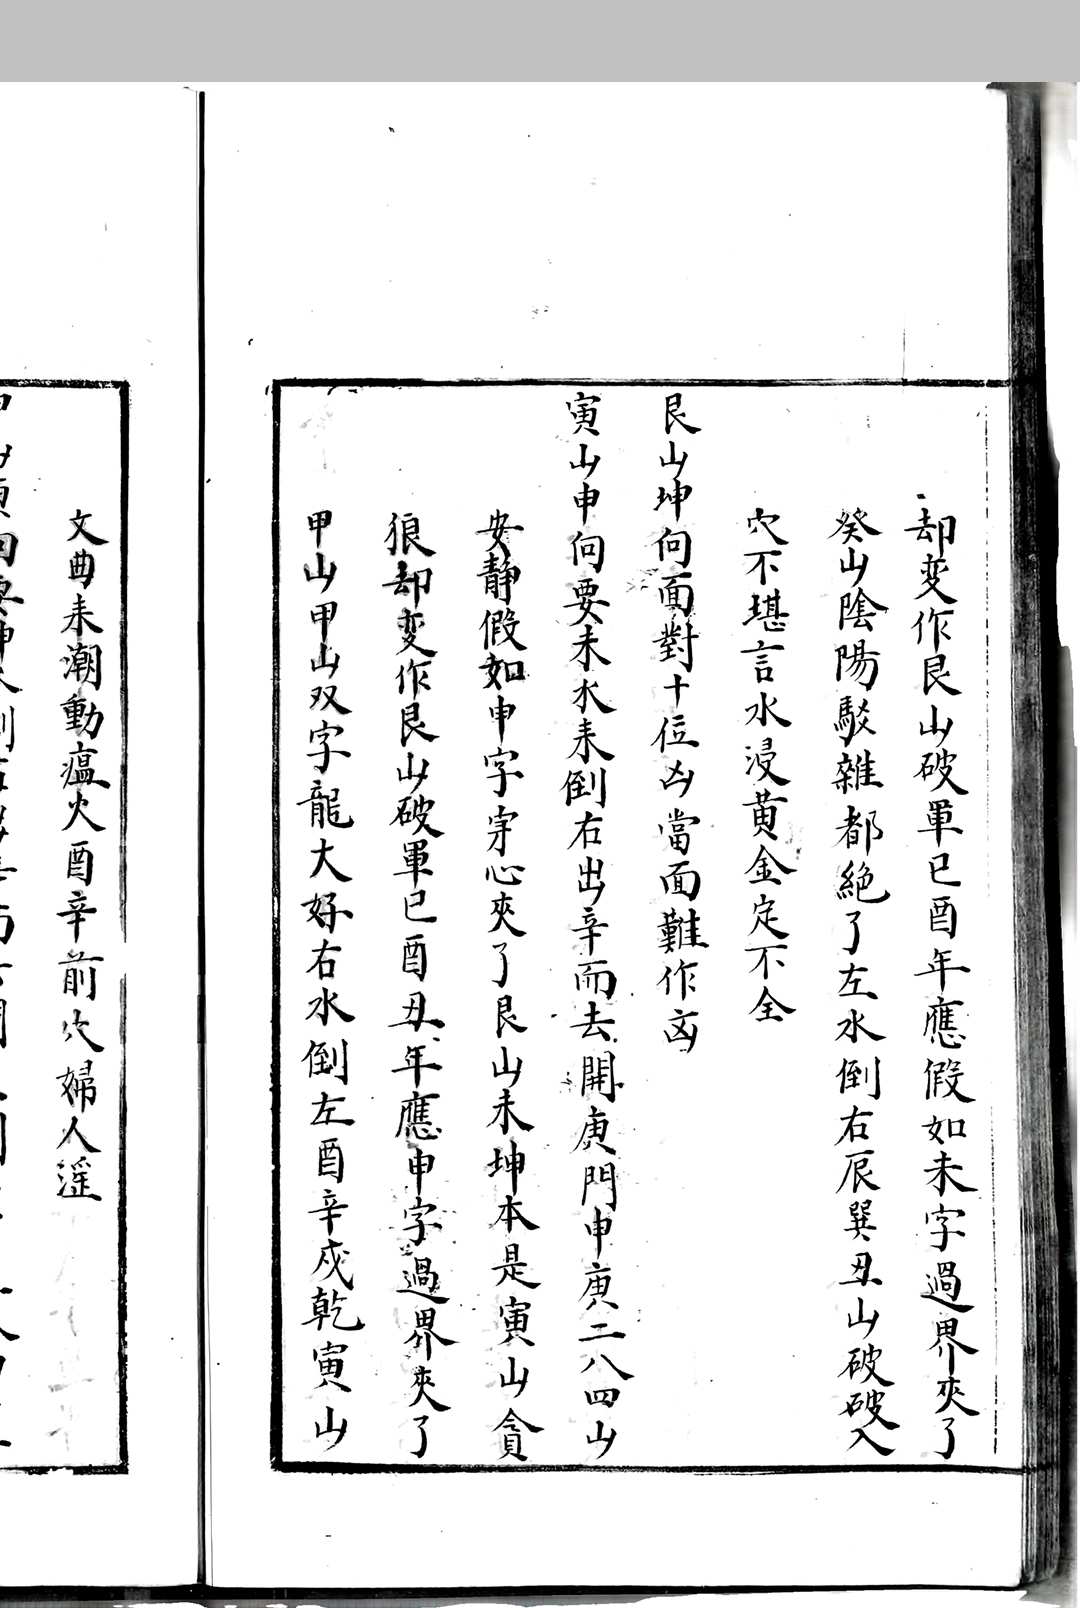 却变作艮山破軍巳酉年應假如未字過界夾了
癸山陰陽駁雜都絶了左水倒右辰巽丑山破破入
穴不堪言水浸黄金定不全
艮山坤向面對十位凶當面難作凶
寅山申向要未水耒倒右出辛而去開庚門申庚二八四山
安静假如申字穿心夾了艮山未坤本是寅山貪
狼却变作艮山破軍巳酉丑年應申字過界夾了
甲山甲山双字龍大好右水倒左酉辛戍乾寅山
文曲耒潮動瘟火酉辛前穴婦人滛